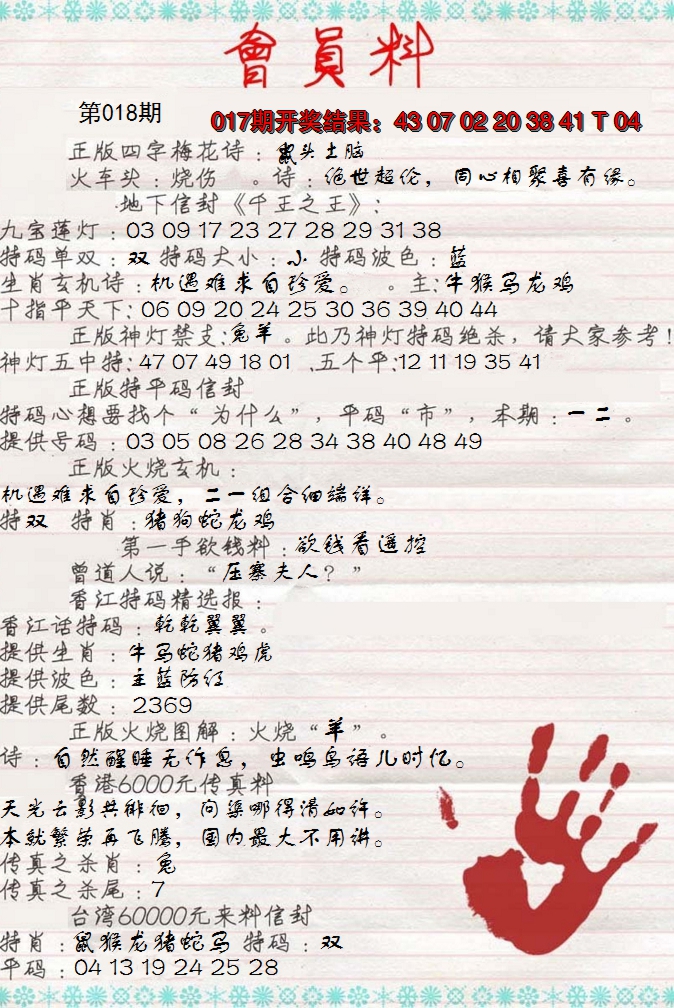 會員料
第018期
017期开奖结果：43 07 02 20 38 41 T 04
正版四字梅花诗：鼠头土脑
火车头：烧伤 。诗：绝世超伦，同心相聚喜有缘。
地下信封《千王之王》：
九宝莲灯：03 09 17 23 27 28 29 31 38
特码单双：双 特码大小：小 特码波色：蓝
生肖玄机诗：机遇难求自珍爱。 。主：牛猴马龙鸡
十指平天下：06 09 20 24 25 30 36 39 40 44
正版神灯禁支：兔羊 。此乃神灯特码绝杀，请大家参考！
神灯五中特：47 07 49 18 01 、五个平：12 11 19 35 41
正版特平码信封
特码心想要找个“为什么”，平码“市”，本期：一二 。
提供号码：03 05 08 26 28 34 38 40 48 49
正版火烧玄机：
机遇难求自珍爱，二一组合细端详。
特双 特肖：猪狗蛇龙鸡
第一手欲钱料：欲钱看遥控
曾道人说：“压寨夫人？”
香江特码精选报：
香江话特码：乾乾翼翼 。
提供生肖：牛马蛇猪鸡虎
提供波色：主蓝防红
提供尾数：2369
正版火烧图解：火烧“羊”。
诗：自然醒睡无作息，虫鸣鸟语儿时忆。
香港6000元传真料
天光云影共徘徊，问渠哪得清如许。
本就繁荣再飞腾，国内最大不用讲。
传真之杀肖：兔
传真之杀尾：7
台湾60000元来料信封
特肖：鼠猴龙猪蛇马 特码：双
平码：04 13 19 24 25 28